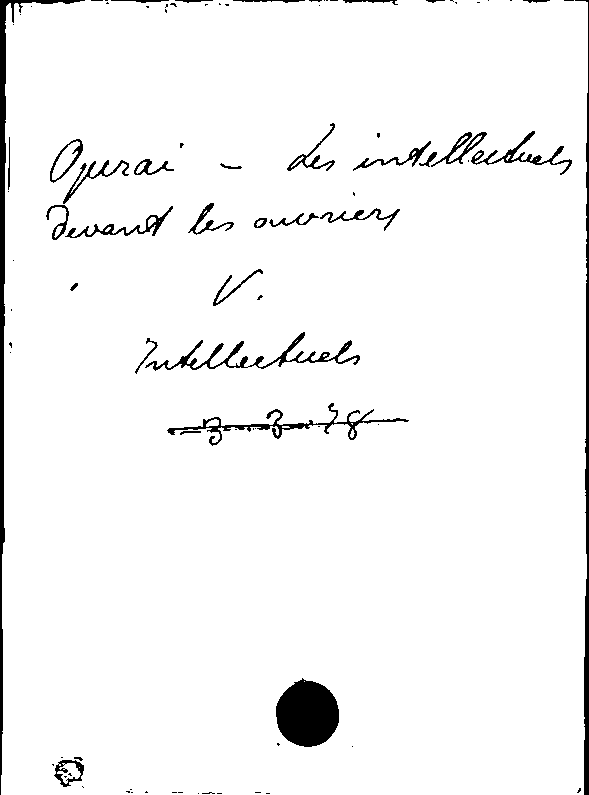 Operai – Les intellectuels
devant les ouvriers
V.
Intellectuels
3 3 78